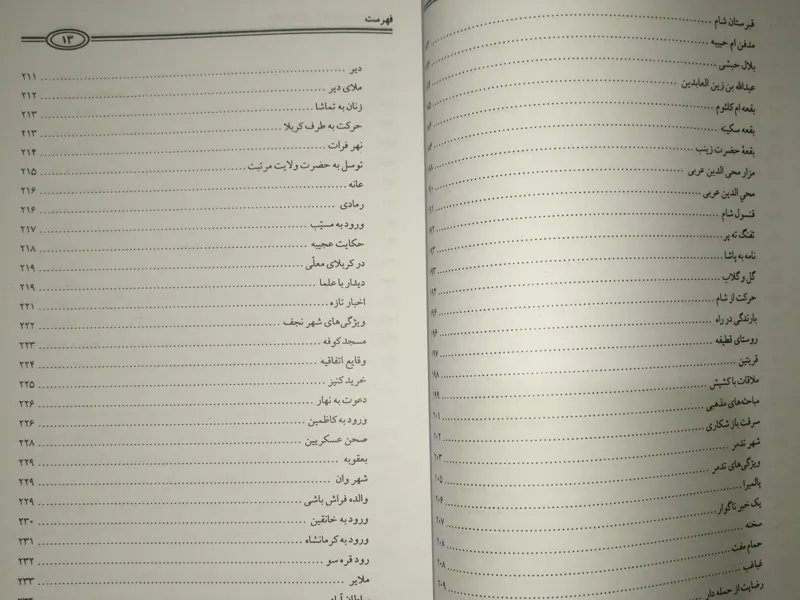 قبرستان شام
مدفن ام حبیبه
بلال حبشی
عبدالله بن زین العابدین
بقعه ام کلثوم
بقعه سکینه
بقعۀ حضرت زینب
مزار محی الدین عربی
محی الدین عربی
قنسول شام
تفنگ ته پر
نامه به پاشا
گل و گلاب
حرکت از شام
بارندگی در راه
روستای قطیفه
قریتین
ملاقات با کشیش
مباحثه‌های مذهبی ۲۰۱
سرقت باز شکاری ۲۰۲
شهر تدمر ۲۰۳
ویژگی‌های تدمر ۲۰۵
پالمیرا ۲۰۶
یک خبر ناگوار ۲۰۷
سخنه ۲۰۸
حمام مفت ۲۰۸
غباغب ۲۰۹
رضایت از حمله دار
فهرست
۱۳
دیر ۲۱۱
ملای دیر ۲۱۲
زنان به تماشا ۲۱۳
حرکت به طرف کربلا ۲۱۳
نهر فرات ۲۱۴
توسل به حضرت ولایت مرتبت ۲۱۵
عانه ۲۱۶
رمادی ۲۱۶
ورود به مسیّب ۲۱۷
حکایت عجیبه ۲۱۸
در کربلای معلّی ۲۱۹
دیدار با علما ۲۱۹
اخبار تازه ۲۲۱
ویژگی‌های شهر نجف ۲۲۲
مسجد کوفه ۲۲۳
وقایع اتفاقیه ۲۲۴
خرید کنیز ۲۲۵
دعوت به نهار ۲۲۶
ورود به کاظمین ۲۲۶
صحن عسکریین ۲۲۸
بعقوبه ۲۲۹
شهر وان ۲۲۹
والده فراش باشی ۲۲۹
ورود به خانقین ۲۳۰
ورود به کرمانشاه ۲۳۱
رود قره سو ۲۳۲
ملایر ۲۳۳